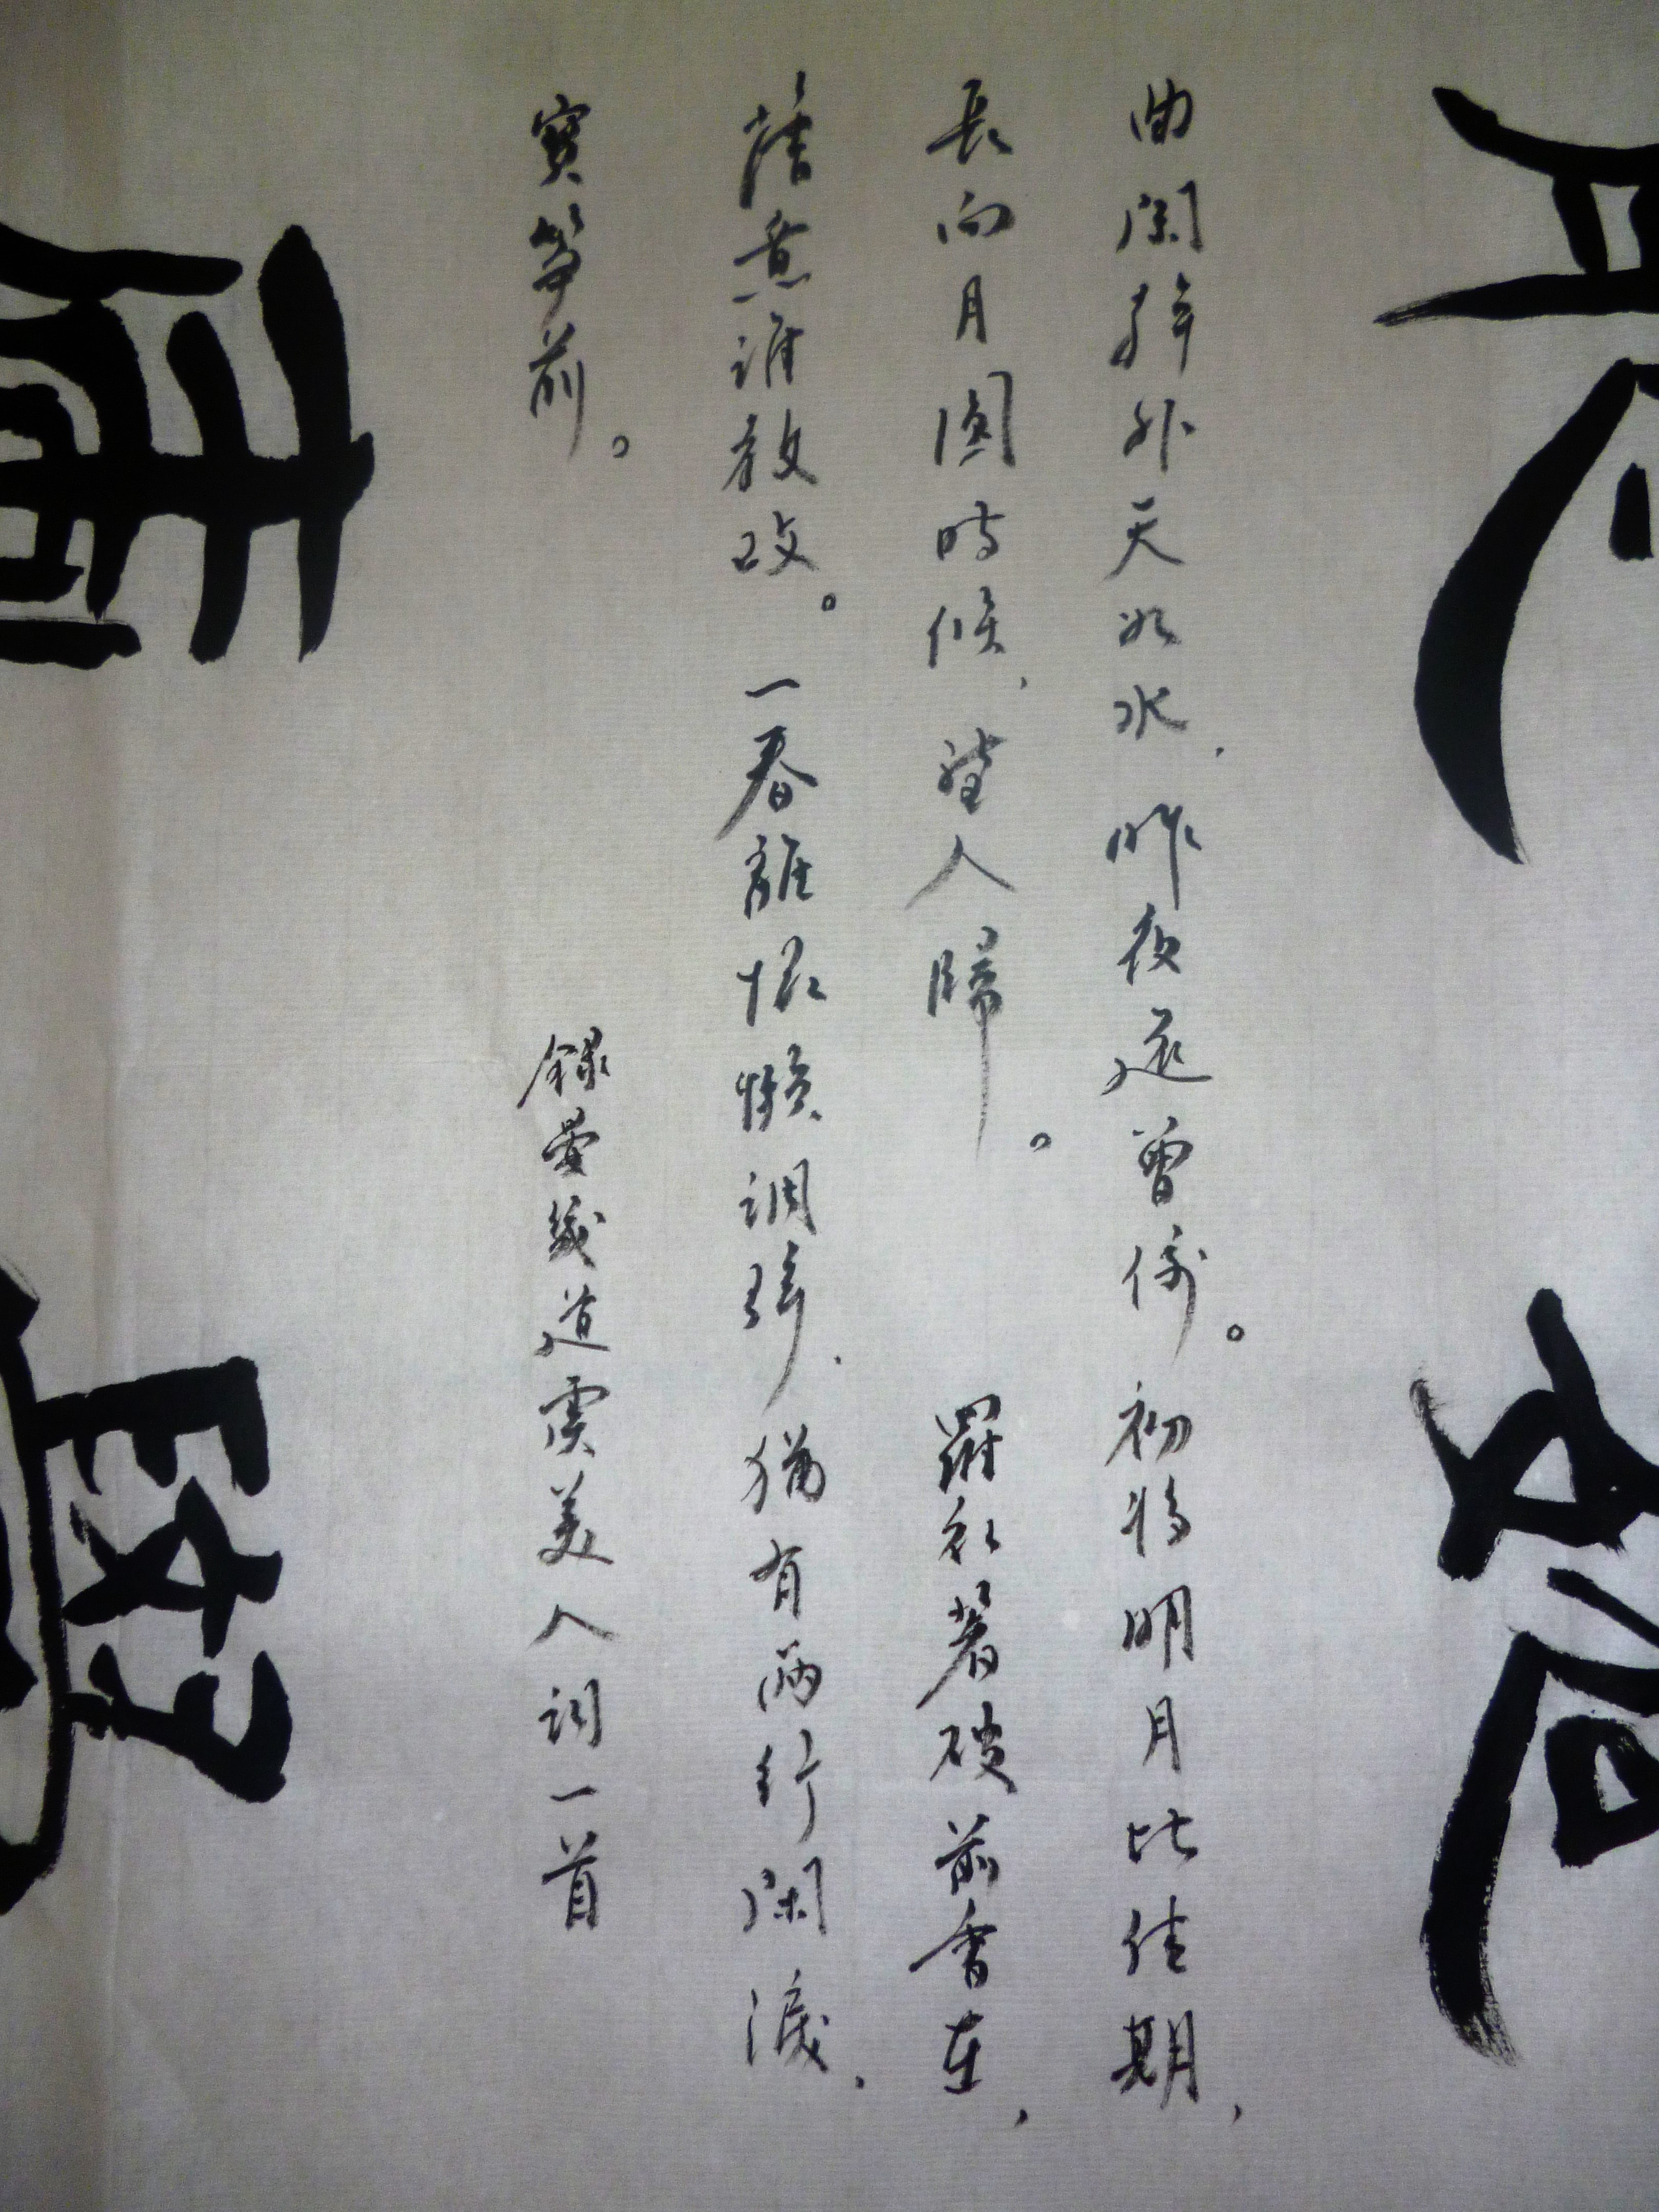 曲闌幹外天如水，昨夜還曾倚。初將明月比佳期，
長向月圓時候，望人歸。羅衣著破前香在，
舊意誰教改。一春離恨懶調弦，猶有兩行閑淚，
寶箏前。
錄晏幾道虞美人詞一首